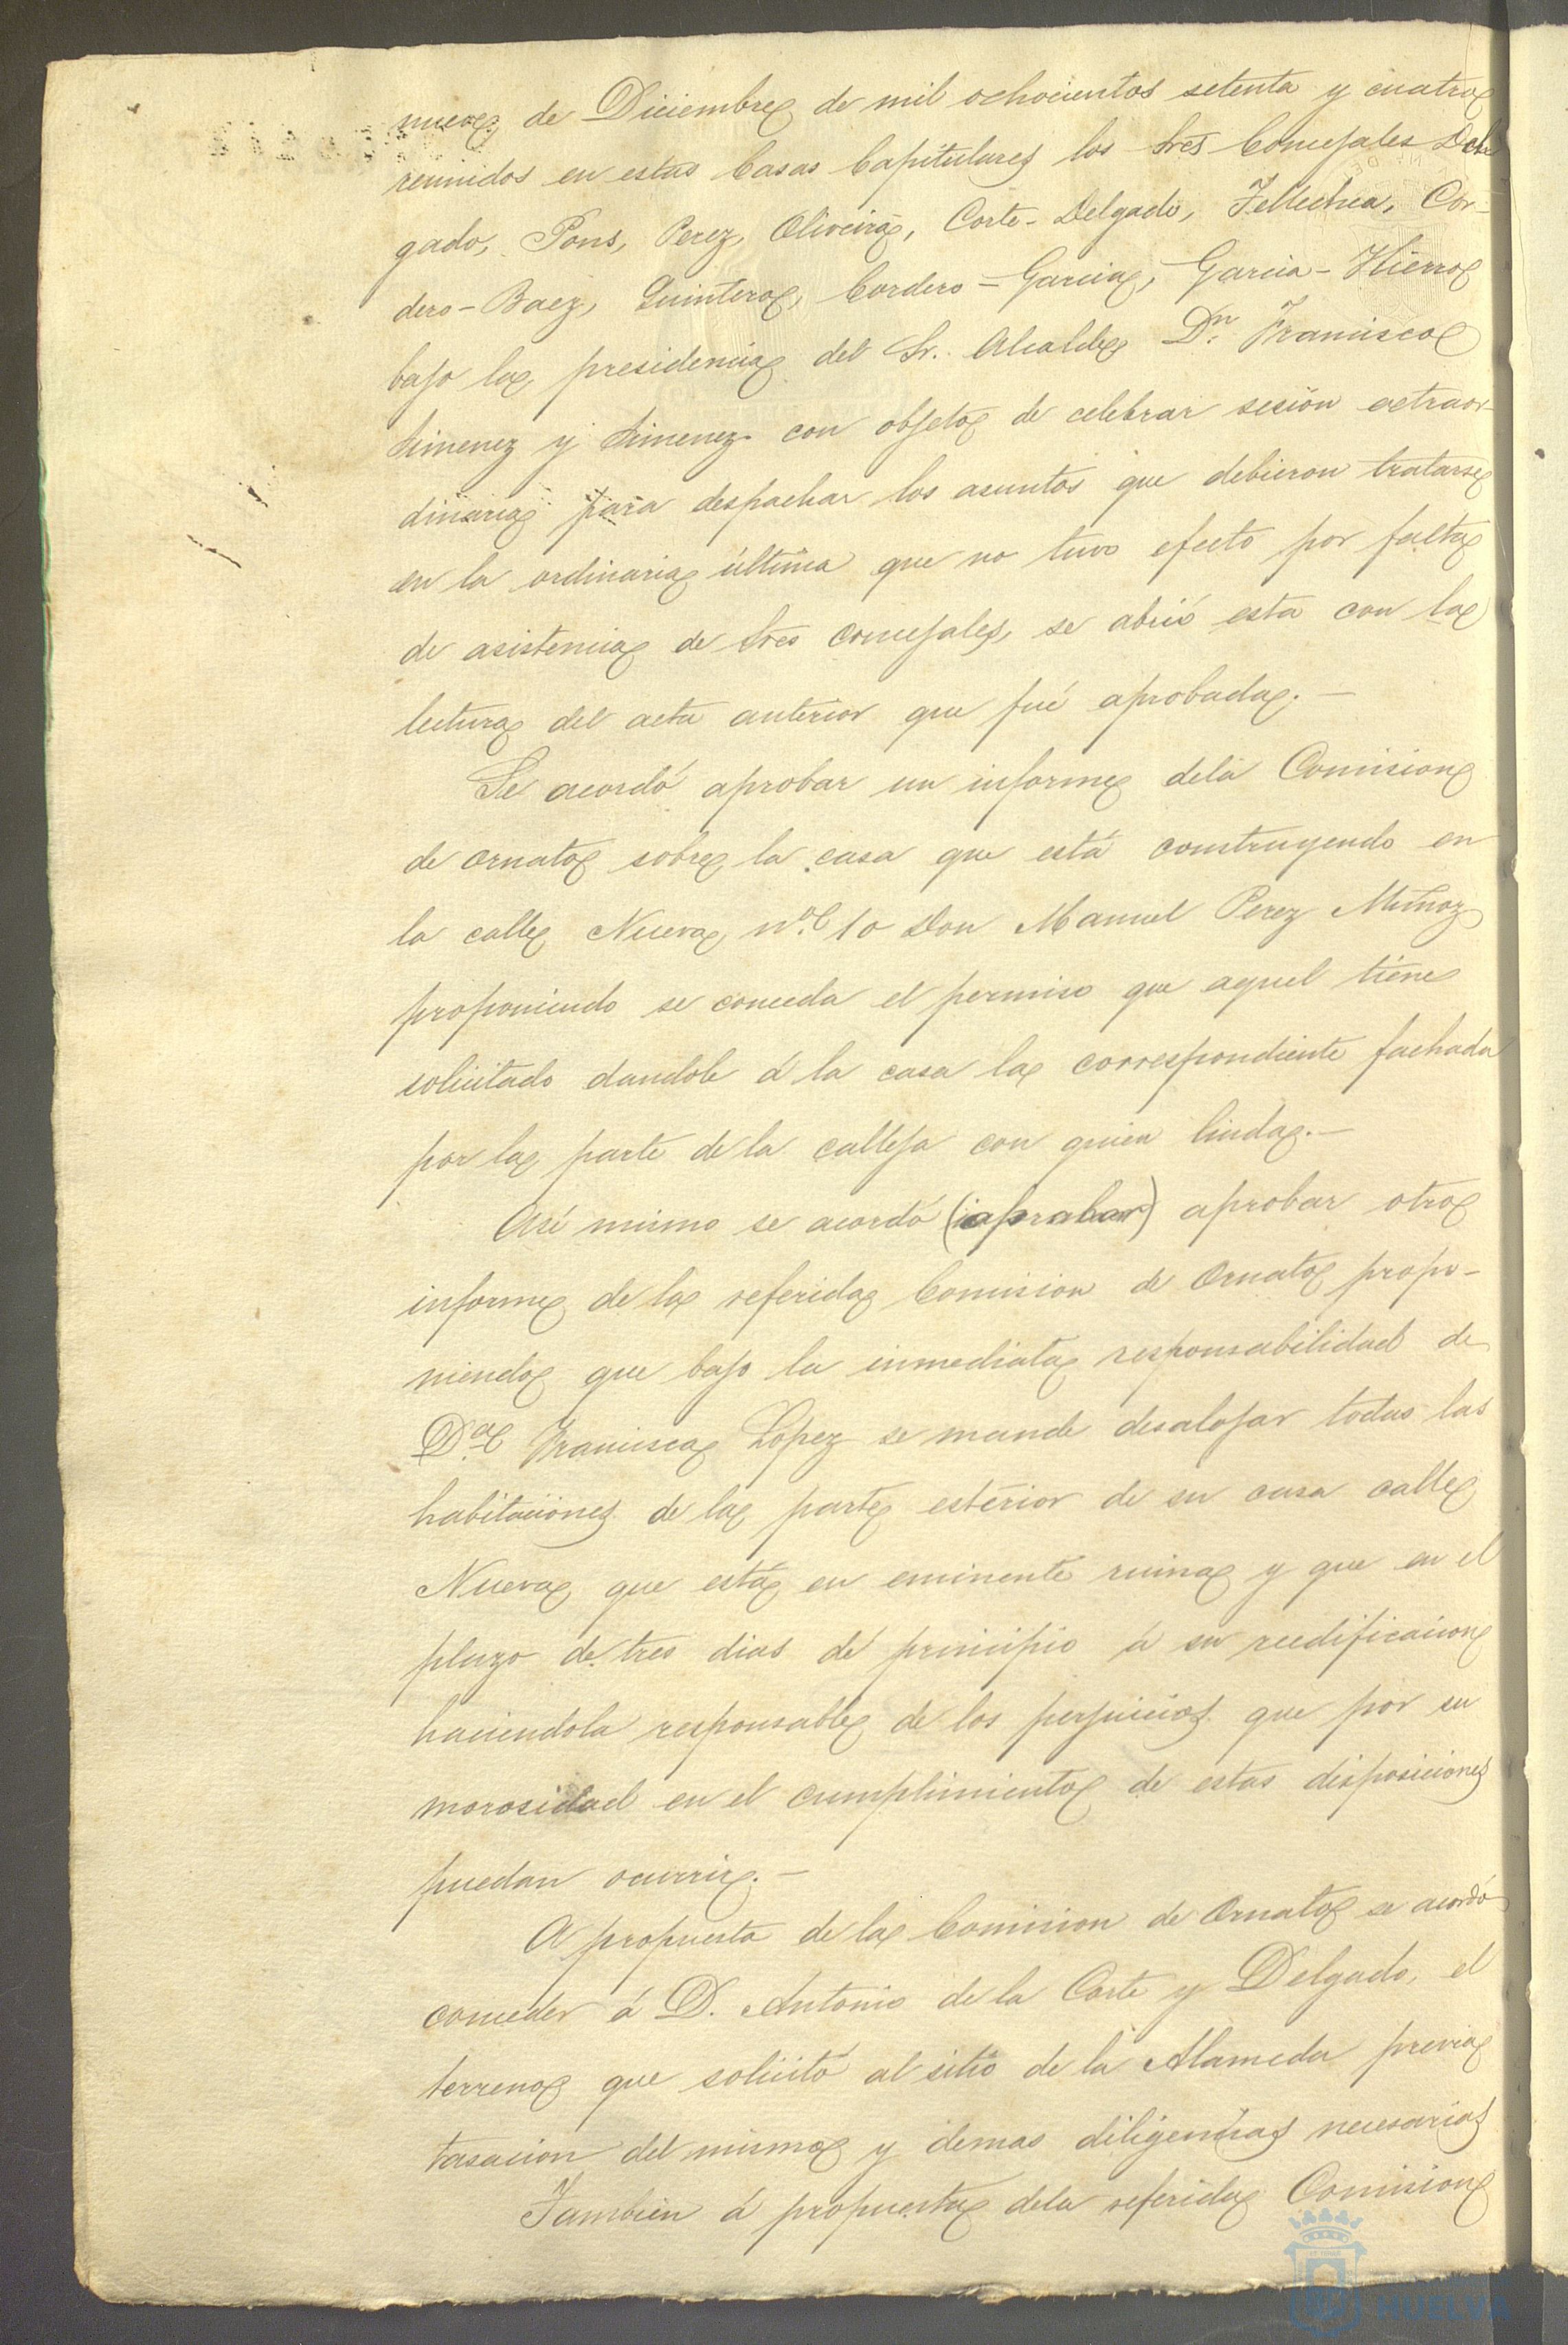 nueve de Diciembre de mil ochocientos setenta y cuatro
reunidos en estas Casas Capitulares los Sres Concejales Del
gado, Pons, Perez, Oliveira, Corte-Delgado, Tellechea, Cor-
dero-Baez, Quintero, Cordero=Garcia, Garcia-Hierro
bajo la presidencia del Sr. Alcalde Dn. Francisco
Jimenez y Jimenez con objeto de celebrar sesión extraor-
dinaria para despachar los asuntos que debieron tratarse
en la ordinaria última que no tuvo efecto por falta
de asistencia de Sres Concejales, se abrió esta con la
lectura del acta anterior que fué aprobada.—
Se acordó aprobar un informe dela Comision
de ornato sobre la casa que está construyendo en
la calle Nueva, no. 10 Don Manuel Perez Muñoz
proponiendo se conceda el permiso que aquel tiene
solicitado dandole á la casa la correspondiente fachada
por la parte de la calleja con quien linda.—
Asi mismo se acordó (aprobar) aprobar otro
informe de la referida Comision de Ornato propo-
niendo que bajo la inmediata responsabilidad de
Da. Francisca Lopez se mande desalojar todas las
habitaciones de la parte esterior de su casa calle
Nueva que está en eminente ruina y que en el
plazo de tres dias dé principio á su reedificacion
haciendola responsable de los perjuicios que por su
morosidad en el cumplimiento de estas disposiciones
puedan ocurrir.—
A propuesta de la Comision de Ornato se acordó
conceder á D. Antonio de la Corte y Delgado, el
terreno que solicitó al sitio de la Alameda previa
tasacion del mismo y demas diligencias necesarias
Tambien á propuesta dela referida Comision
HUELVA